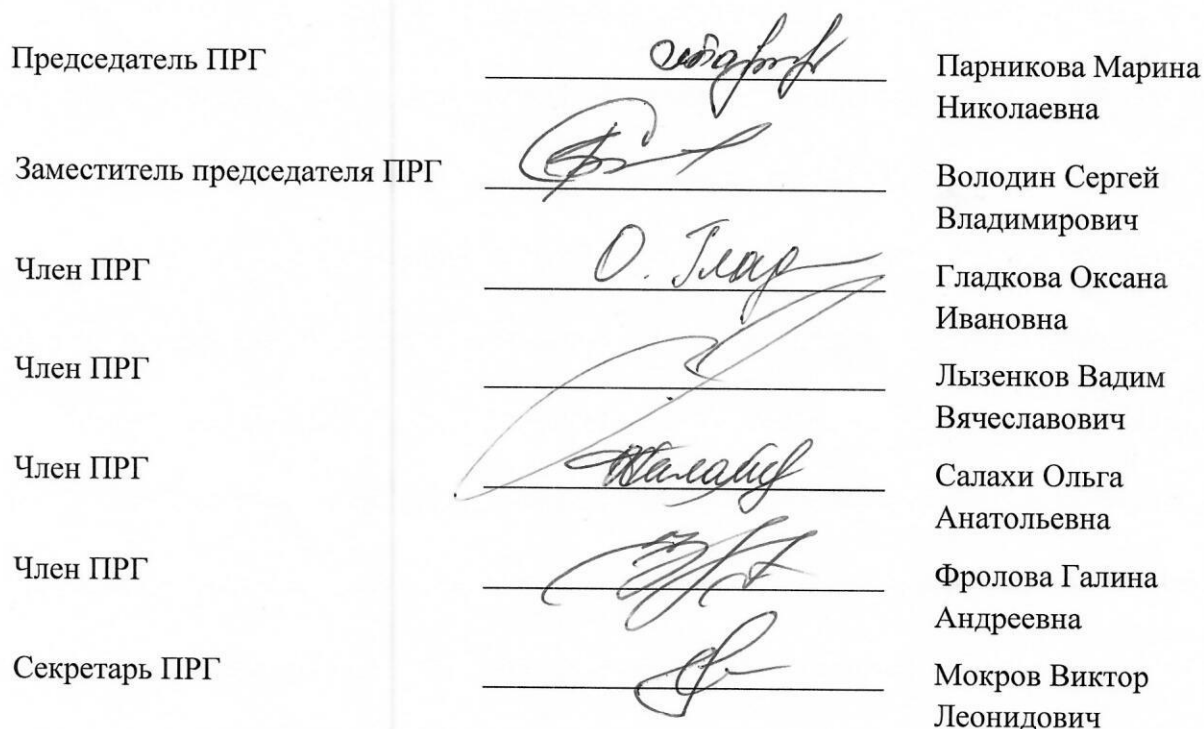 Председатель ПРГ
Парникова Марина
Николаевна
Заместитель председателя ПРГ
Володин Сергей
Владимирович
Член ПРГ
О. Глад
Гладкова Оксана
Ивановна
Член ПРГ
Лызенков Вадим
Вячеславович
Член ПРГ
Салахи Ольга
Анатольевна
Член ПРГ
Фролова Галина
Андреевна
Секретарь ПРГ
Мокров Виктор
Леонидович